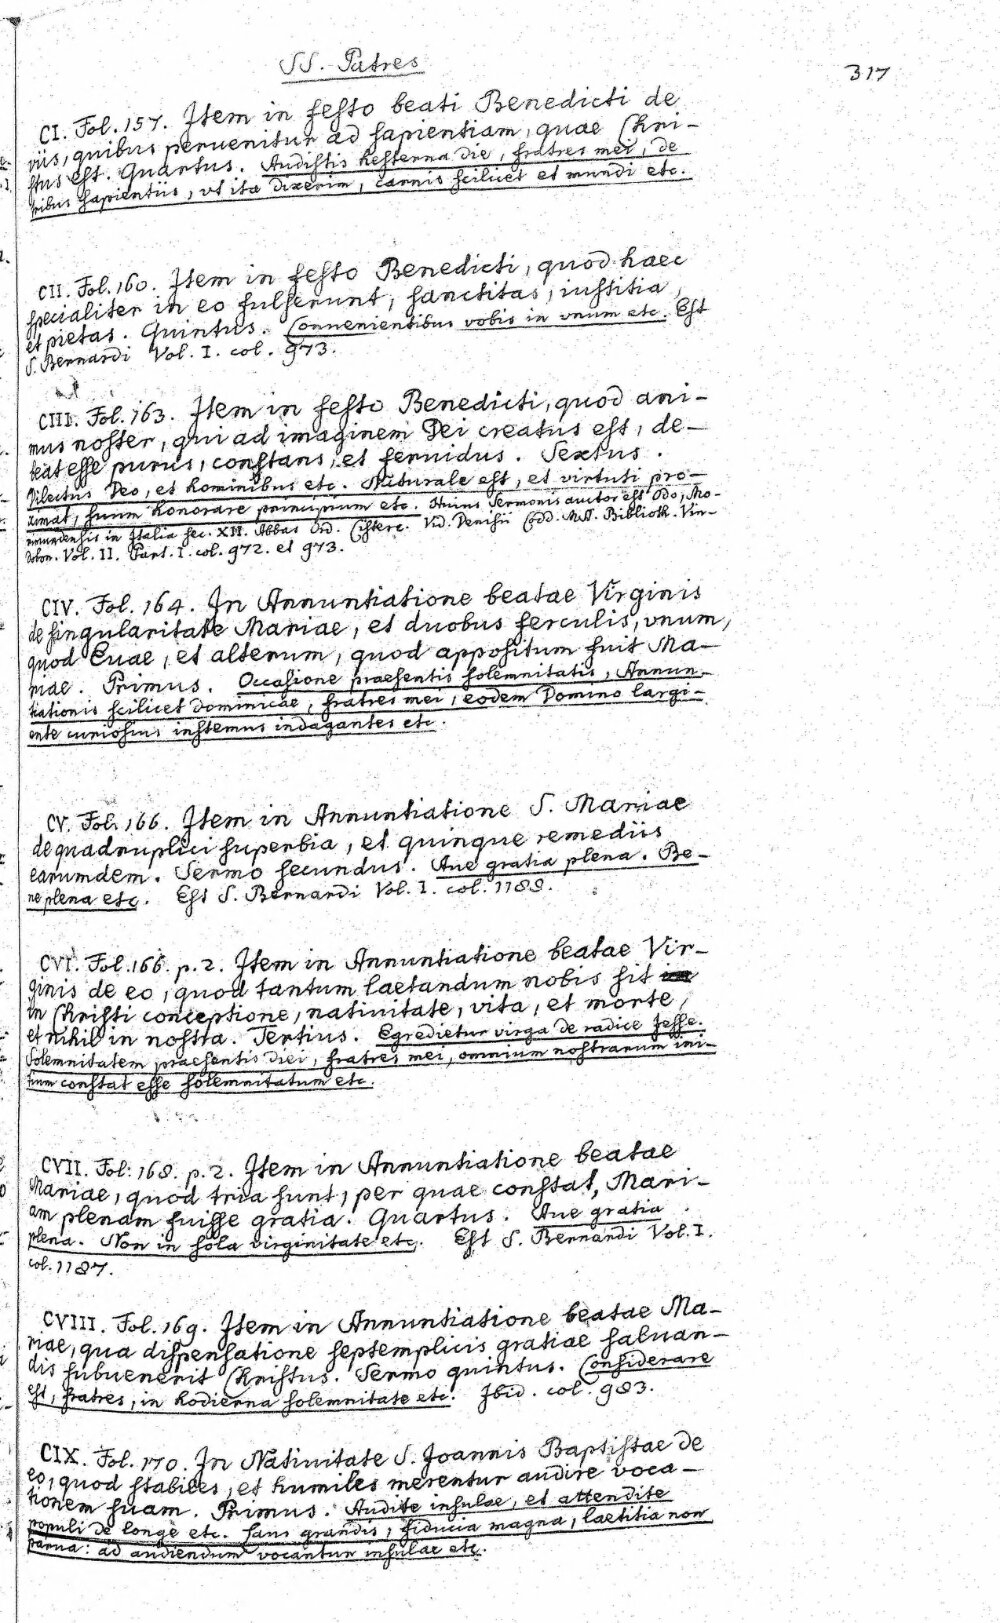 SS. Patres
317
CI. Fol. 157. Item in festo beati Benedicti de
viis, quibus peruenitur ad sapientiam, quae Chri-
stus est. Quartus. Audistis hesterna die, fratres mei, de
tribus sapientiis, vt ita dixerim, carnis scilicet et mundi etc.
CII. Fol. 160. Item in festo Benedicti, quod haec
specialiter in eo fulserunt, sanctitas, iustitia,
et pietas. Quintus. Conuenientibus vobis in vnum etc. Est
S. Bernardi Vol. I. col. 973.
CIII. Fol. 163. Item in festo Benedicti, quod ani-
mus noster, qui ad imaginem Dei creatus est, de-
beat esse purus, constans, et feruidus. Sextus.
Dilectus Deo, et hominibus etc. Naturale est, et virtuti pro-
ximat, suum honorare principium etc. Huius Sermonis auctor est Odo, Mo-
in Italia sec. XII. Abbas Ord. Cisterc. Vid. Denisii Codd. MSS. Biblioth. Vin-
dobon. Vol. II. Part. I. col. 972. et 973.
CIV. Fol. 164. In Annuntiatione beatae Virginis
de singularitate Mariae, et duobus ferculis, vnum,
quod Euae, et alterum, quod appositum fuit Ma-
riae. Primus. Occasione praesentis solemnitatis, Annun-
tiationis scilicet dominicae, fratres mei, eodem Domino largi-
ente curiosius instemus indagantes etc.
CV. Fol. 166. Item in Annuntiatione S. Mariae
de quadruplici superbia, et quinque remediis
earumdem. Sermo secundus. Aue gratia plena. Be-
ne plena etc. Est S. Bernardi Vol. I. col. 1188.
CVI. Fol. 166. p. 2. Item in Annuntiatione beatae Vir-
ginis de eo, quod tantum laetandum nobis sit
in Christi conceptione, natiuitate, vita, et morte,
et nihil in nostra. Tertius. Egredietur virga de radice Jesse.
Solemnitatem praesentis diei, fratres mei, omnium nostrarum ini-
tium constat esse solemnitatum etc.
CVII. Fol. 168. p. 2. Item in Annuntiatione beatae
Mariae, quod tria sunt, per quae constat, Mari-
am plenam fuisse gratia. Quartus. Aue gratia
plena. Non in sola virginitate etc. Est S. Bernardi Vol. I.
col. 1187.
CVIII. Fol. 169. Item in Annuntiatione beatae Ma-
riae, qua dispensatione septemplicis gratiae saluan-
dis subuenerit Christus. Sermo quintus. Considerare
est, fratres, in hodierna solemnitate etc. Ibid. col. 983.
CIX. Fol. 170. In Natiuitate S. Joannis Baptistae de
eo, quod stabiles, et humiles merentur audire voca-
tionem suam. Primus. Audite insulae, et attendite
populi de longe etc. Sans grandis, fiducia magna, laetitia non
parua: ad audiendum vocantur insulae etc.